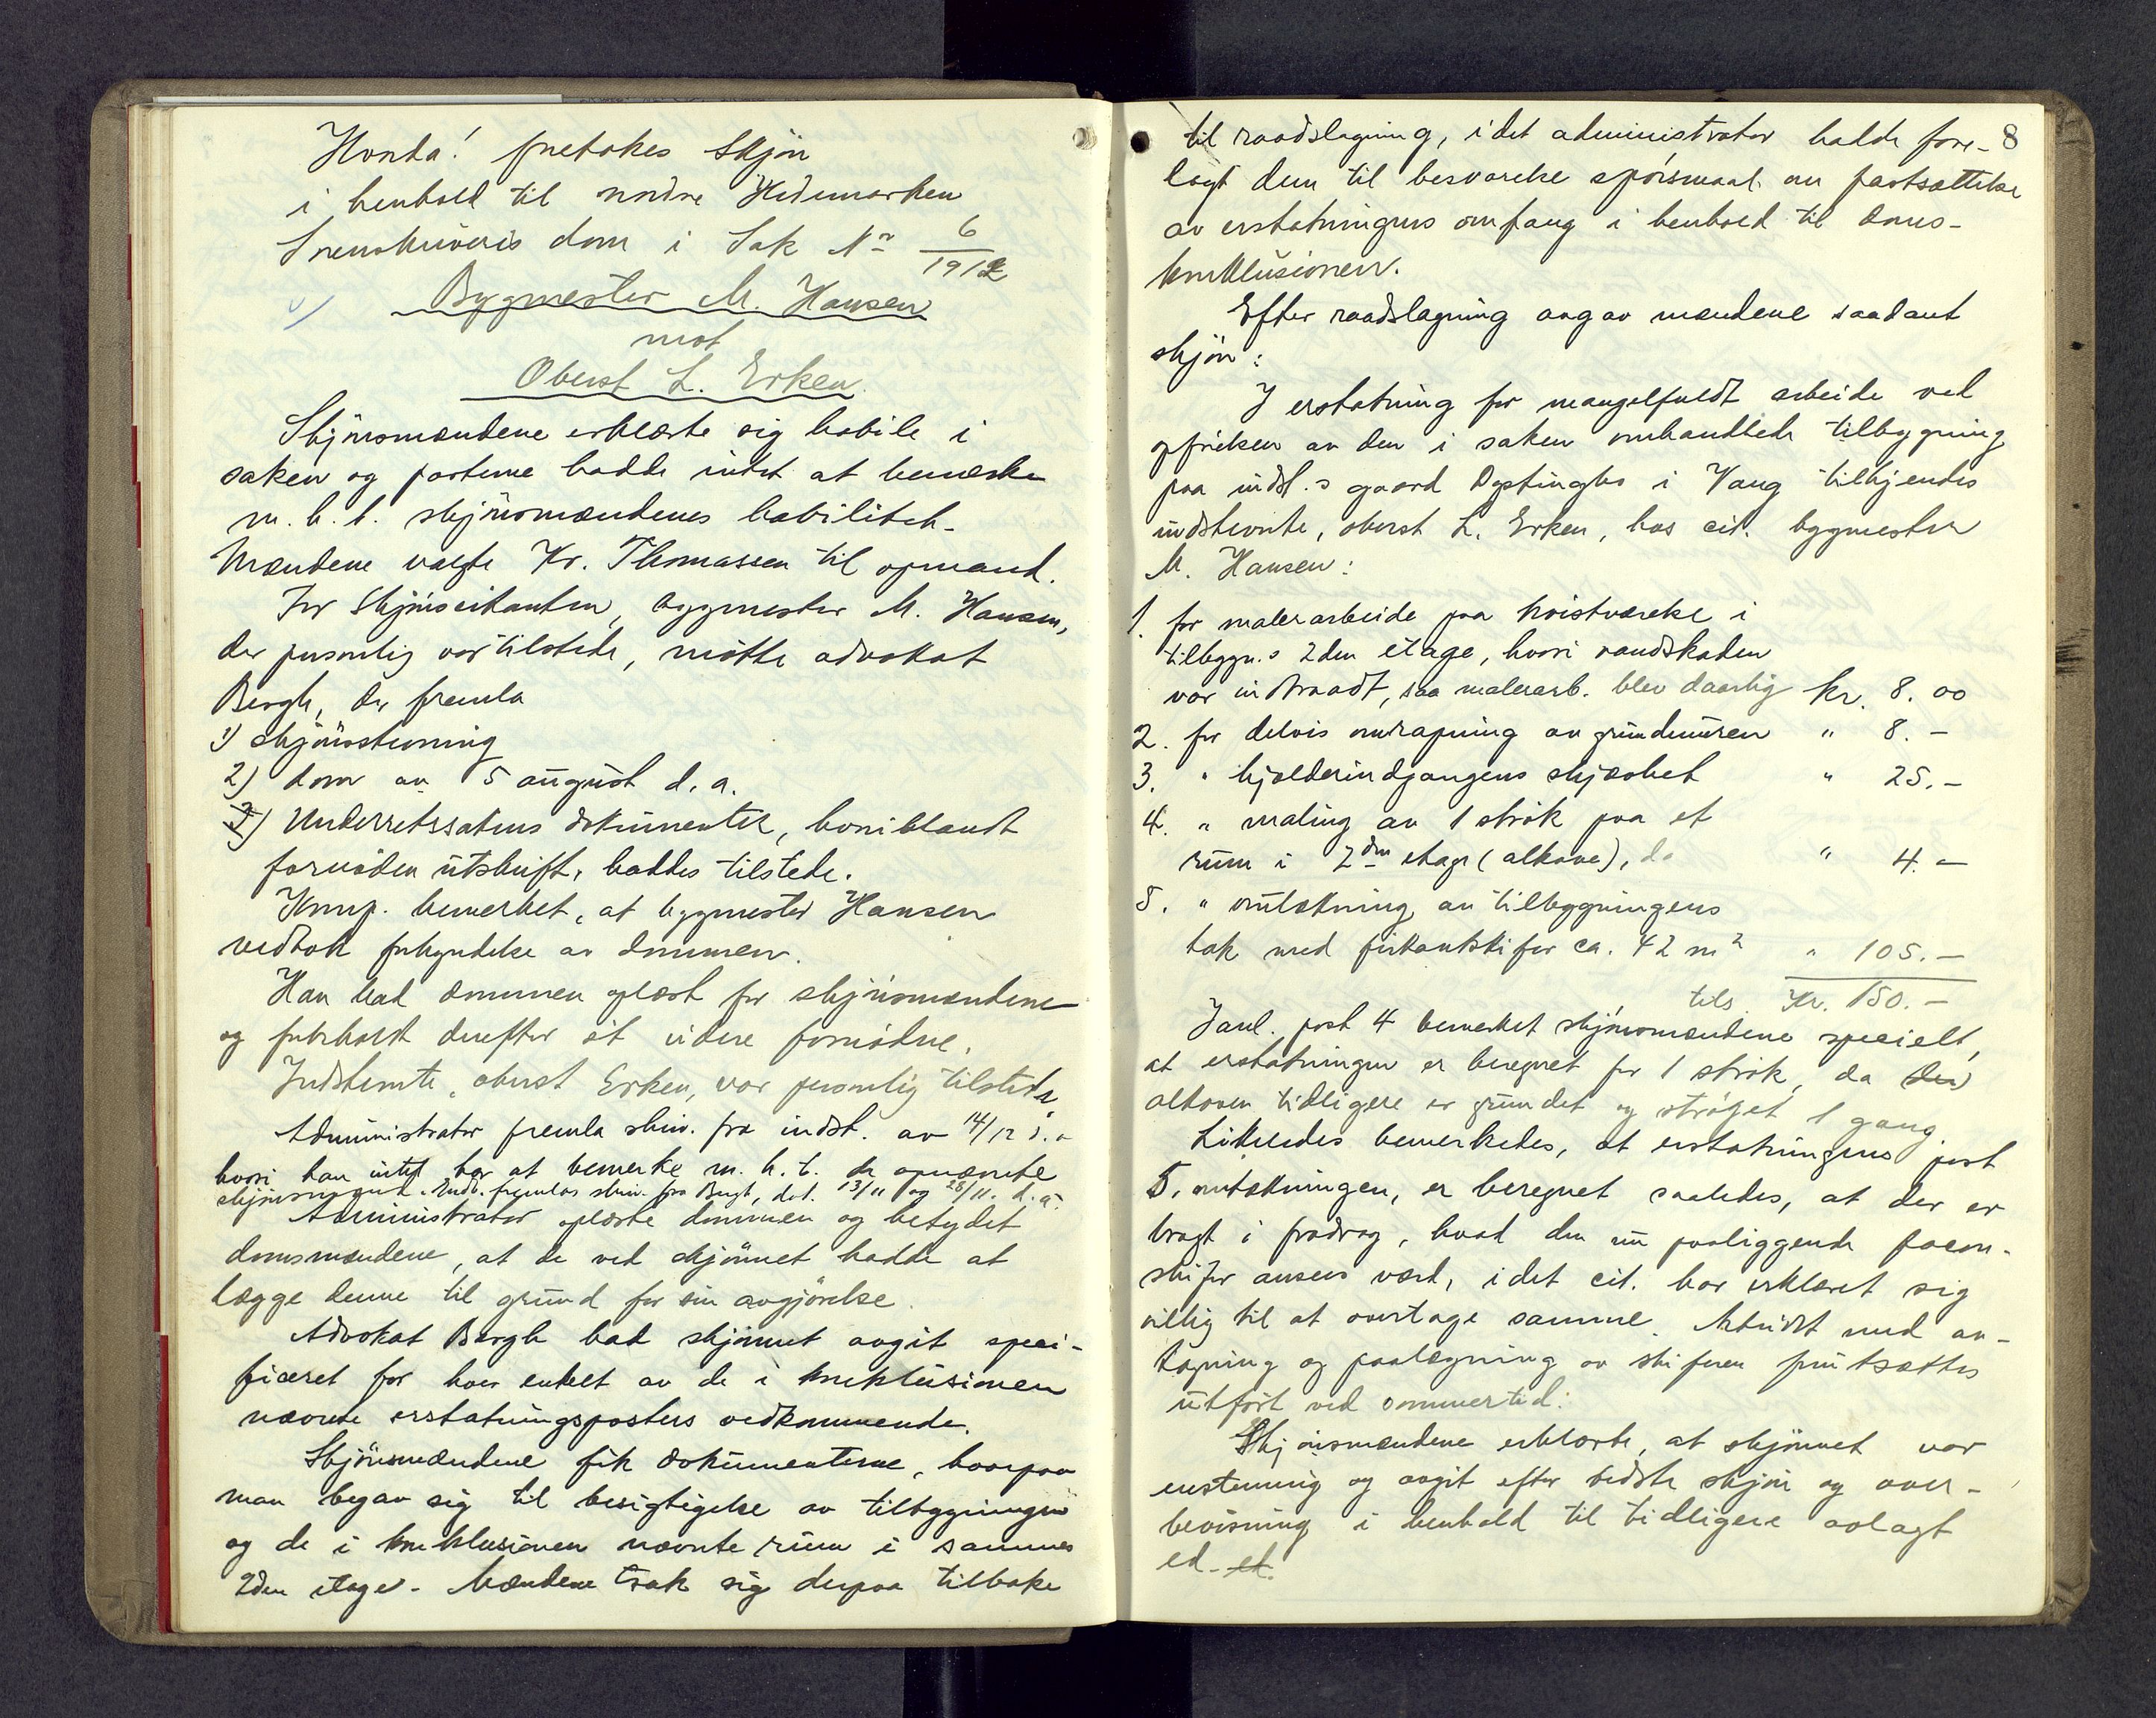 Hvorda! foretokes Skjøn
i henhold til nordre Hedemarken
Sorenskriveris dom i Sak Nr 6/1912
Bygmester M. Hansen
mot
Oberst L. Erken.
Skjønsmændene erklærte sig habile i
saken og parterne hadde intet at bemerke
m. h. t. skjønsmændenes habilitet.
Mændene valgte Kr. Thomassen til opmand.
For Skjønscitanten, bygmester M. Hansen,
der personlig var tilstede, møtte advokat
Bergh, der fremla
1) skjønsstevning
2) dom av 5 august d. a.
3) Underretssakens dokumenter, hvoriblandt
fornøden utskrift, haddes tilstede.
Komp. bemerket, at bygmester Hansen
vedtok forkyndelse av dommen.
Han bad dommen oplæst for skjønsmændene
og forbeholdt derefter et videre fornødne.
Indstevnte, oberst Erken, var personlig tilstede
Administrator fremla skriv. fra indst. av 14/12 d. a
hvori han intet har at bemerke m. h. t. de opnævnte
skjønsmænd. Endv. fremlas skriv. fra Bergh, dat. 13/11 og 28/11. d. a.
Administrator oplæste dommen og betydet
domsmændene, at de ved skjønnet hadde at
lægge denne til grund for sin avgjørelse.
Advokat Bergh bad skjønnet avgit speci-
ficeret for hver enkelt av de i konklusionen
nævnte erstatningsposters vedkommende.
Skjønsmændene fik dokumenterne, hvorpaa
man begav sig til besigtigelse av tilbygningen
og de i konklusionen nævnte rum i sammes
2den etage. Mændene trak sig derpaa tilbake
8
til raadslagning, idet administrator hadde fore-
lagt dem til besvarelse spørsmaal om fastsættelse
av erstatningens omfang i henhold til doms-
konklusionen.
Efter raadslagning avgav mændene saadant
skjøn:
I erstatning for mangelfuldt arbeide ved
opførelsen av den i saken omhandlede tilbygning
paa indst.s gaard Dystingbo i Vang tilkjendes
indstevnte, oberst L. Erken, hos cit. bygmester
M. Hansen:
1. for malerarbeide paa kvistværelse i
tilbygn.s 2den etage, hvori vandskaden
var indtraadt, saa malerarb. blev daarlig kr. 8.00
2. for delvis omrapning av grundmuren " 8.-
3. " kjælderindgangens skjævhet " 25.-
4. " maling av 1 strøk paa et
rum i 2den etage (alkove), do " 4.-
5. " omtækning av tilbygningens
tak med firkantskifer ca. 42 m2 " 105.-
tils. Kr. 150.-
I anl. post 4 bemerket skjønsmændene specielt,
at erstatningen er beregnet for 1 strøk, da den
alkoven tidligere er grundet og strøket 1 gang.
Likeledes bemerkedes, at erstatningens post
5. omtækningen, er beregnet saaledes, at der er
bragt i fradrag, hvad den nu paaliggende facon-
skifer ansees værd, idet cit. har erklæret sig
villig til at overtage samme. Arbeidet med av-
tagning og paalægning av skiferen forutsættes
utført ved sommertid.
Skjønsmændene erklærte, at skjønnet var
enstemmig og avgit efter bedste skjøn og over-
bevisning i henhold til tidligere avlagt
ed. et.